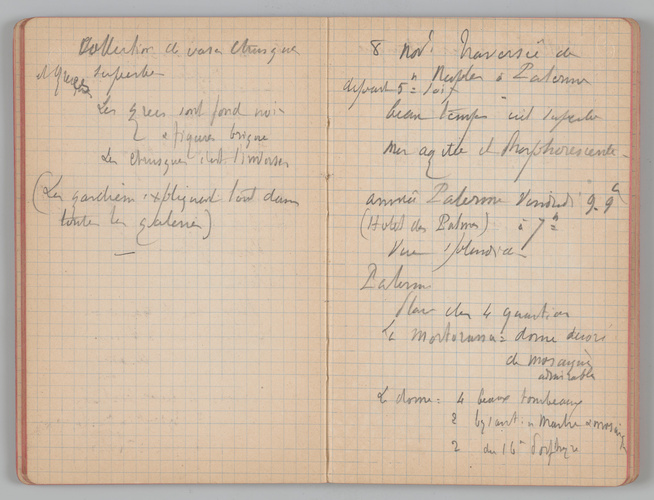 Collection de vases étrusques
et grecs superbe
Les grecs sont fond noir
et figures brique
Les étrusques c'est l'inverse
(Les gardiens expliquent tout dans
toutes les galeries)
8 Nov. Traversée de
Naples à Palerme
départ 5h soir
beau temps ciel superbe
Mer agitée et Phosphorescente
arrivée Palerme Vendredi 9. 9
(Hotel des Palmes) à 7h
Vue splendide
Palerme
Place des 4 quartiers
La Martorana = dome décoré
de mosaïque
admirable
Le dome = 4 beaux tombeaux
2 byzantins Marbre et mosaïque
2 du 16e Porphyre